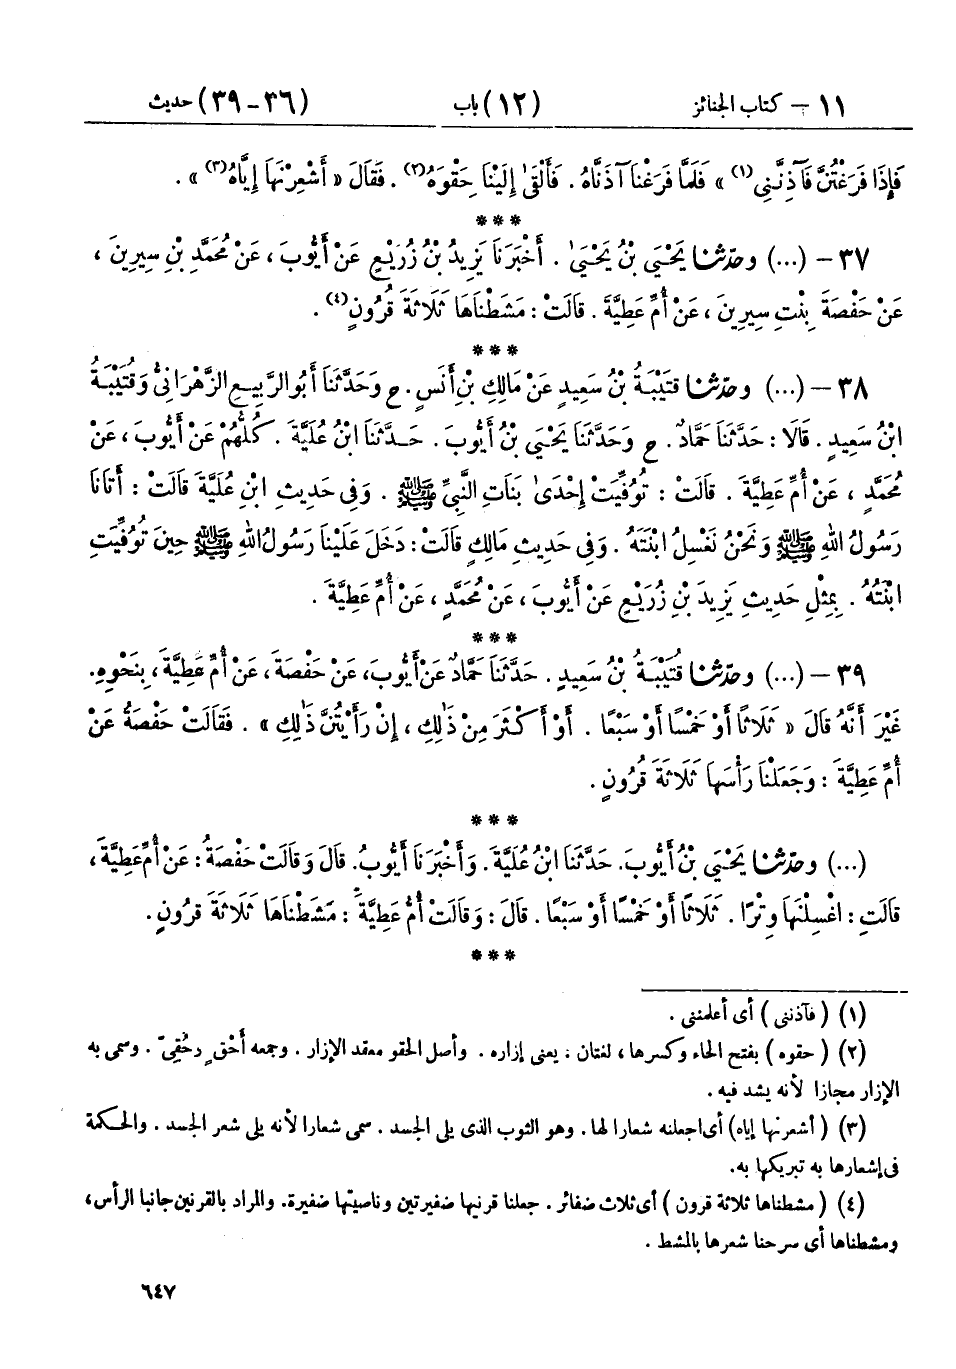 ١١ – كتاب الجنائز (١٢) باب (٣٦ – ٣٩) حديث
فَإِذَا فَرَغْتُنَّ فَآذِنَّنِي(١) » فَلَمَّا فَرَغْنَا آذَنَّاهُ . فَأَلْقَىٰ إِلَيْنَا حِقْوَهُ(٢) . فَقَالَ « أَشْعِرْنَهَا إِيَّاهُ(٣) » .
***
٣٧ – (...) وحدّثنا يَحْيَى بْنُ يَحْيَىٰ . أَخْبَرَنَا يَزِيدُ بْنُ زُرَيْعٍ عَنْ أَيُّوبَ ، عَنْ مُحَمَّدِ بْنِ سِيرِينَ ،
عَنْ حَفْصَةَ بِنْتِ سِيرِينَ ، عَنْ أُمِّ عَطِيَّةَ . قَالَتْ : مَشَطْنَاهَا ثَلَاثَةَ قُرُونٍ(٤) .
***
٣٨ – (...) وحدّثنا قُتَيْبَةُ بْنُ سَعِيدٍ عَنْ مَالِكِ بْنِ أَنَسٍ . ح وَحَدَّثَنَا أَبُو الرَّبِيعِ الزَّهْرَانِيُّ وَقُتَيْبَةُ
ابْنُ سَعِيدٍ . قَالَا : حَدَّثَنَا حَمَّادٌ . ح وَحَدَّثَنَا يَحْيَى بْنُ أَيُّوبَ . حَدَّثَنَا ابْنُ عُلَيَّةَ . كُلُّهُمْ عَنْ أَيُّوبَ ، عَنْ
مُحَمَّدٍ ، عَنْ أُمِّ عَطِيَّةَ . قَالَتْ : تُوُفِّيَتْ إِحْدَىٰ بَنَاتِ النَّبِيِّ ﷺ . وَفِي حَدِيثِ ابْنِ عُلَيَّةَ قَالَتْ : أَتَانَا
رَسُولُ اللهِ ﷺ وَنَحْنُ نَغْسِلُ ابْنَتَهُ . وَفِي حَدِيثِ مَالِكٍ قَالَتْ : دَخَلَ عَلَيْنَا رَسُولُ اللهِ ﷺ حِينَ تُوُفِّيَتِ
ابْنَتُهُ . بِمِثْلِ حَدِيثِ يَزِيدَ بْنِ زُرَيْعٍ عَنْ أَيُّوبَ ، عَنْ مُحَمَّدٍ ، عَنْ أُمِّ عَطِيَّةَ .
***
٣٩ – (...) وحدّثنا قُتَيْبَةُ بْنُ سَعِيدٍ . حَدَّثَنَا حَمَّادٌ عَنْ أَيُّوبَ ، عَنْ حَفْصَةَ ، عَنْ أُمِّ عَطِيَّةَ ، بِنَحْوِهِ .
غَيْرَ أَنَّهُ قَالَ « ثَلَاثًا أَوْ خَمْسًا أَوْ سَبْعًا . أَوْ أَكْثَرَ مِنْ ذَٰلِكِ ، إِنْ رَأَيْتُنَّ ذَٰلِكِ » . فَقَالَتْ حَفْصَةُ عَنْ
أُمِّ عَطِيَّةَ : وَجَعَلْنَا رَأْسَهَا ثَلَاثَةَ قُرُونٍ .
***
(...) وحدّثنا يَحْيَى بْنُ أَيُّوبَ . حَدَّثَنَا ابْنُ عُلَيَّةَ . وَأَخْبَرَنَا أَيُّوبُ . قَالَ وَقَالَتْ حَفْصَةُ : عَنْ أُمِّ عَطِيَّةَ ،
قَالَتِ : اغْسِلْنَهَا وِتْرًا . ثَلَاثًا أَوْ خَمْسًا أَوْ سَبْعًا . قَالَ : وَقَالَتْ أُمُّ عَطِيَّةَ : مَشَطْنَاهَا ثَلَاثَةَ قُرُونٍ .
***
(١) ( فآذنني ) أي أعلمنني .
(٢) ( حقوه ) بفتح الحاء وكسرها ، لغتان : يعنى إزاره . وأصل الحقو معقد الإزار . وجمعه أَحْقٍ وحُقِيّ . وسمى به
الإزار مجازا لأنه يشد فيه .
(٣) ( أشعرنها إياه ) أى اجعلنه شعارا لها . وهو الثوب الذى يلى الجسد . سمى شعارا لأنه يلى شعر الجسد . والحكمة
فى إشعارها به تبريكها به .
(٤) ( مشطناها ثلاثة قرون ) أى ثلاث ضفائر . جعلنا قرنيها ضفيرتين وناصيتها ضفيرة . والمراد بالقرنين جانبا الرأس ،
ومشطناها أى سرحنا شعرها بالمشط .
٦٤٧